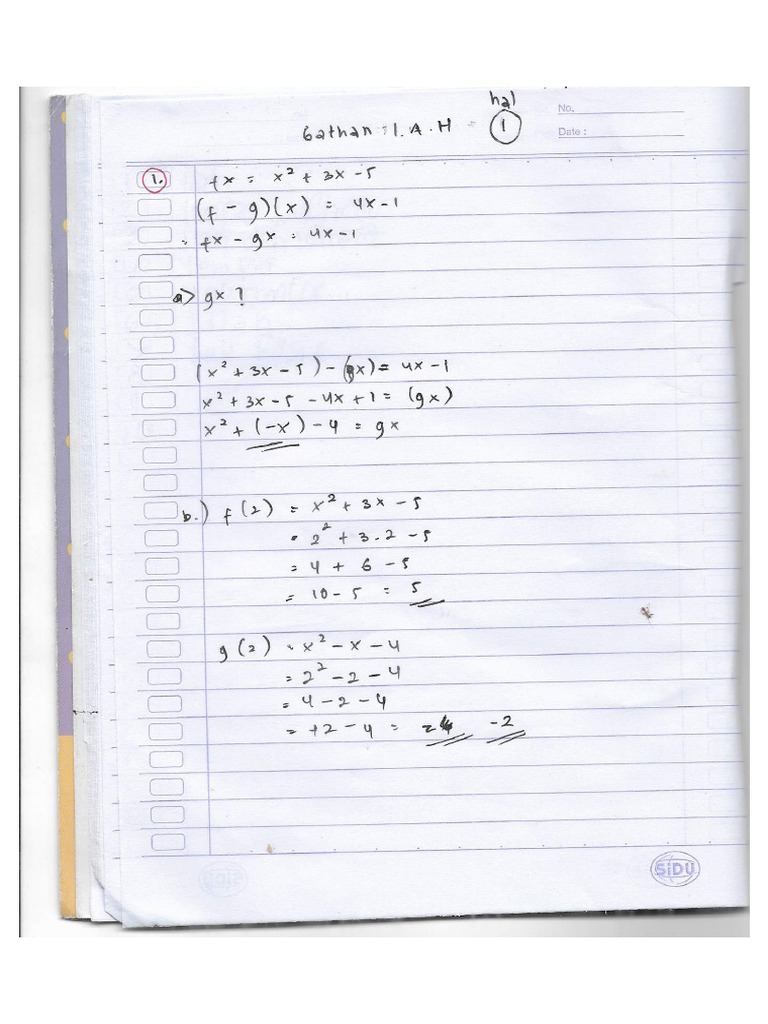 hal
No.
Gathan : I. A. H = 1
Date :
1. fx = x² + 3x - 5
(f - g)(x) = 4x - 1
= fx - gx = 4x - 1
a> gx ?
(x² + 3x - 5) - (gx) = 4x - 1
x² + 3x - 5 - 4x + 1 = (gx)
x² + (-x) - 4 = gx
b.) f(2) = x² + 3x - 5
= 2² + 3.2 - 5
= 4 + 6 - 5
= 10 - 5 = 5
g(2) = x² - x - 4
= 2² - 2 - 4
= 4 - 2 - 4
= +2 - 4 = -2
SiDU